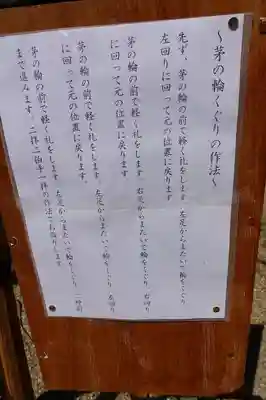 ～茅の輪くぐりの作法～
先ず、茅の輪の前で軽く礼をします 左足からまたいで輪をくぐり
左回りに回って元の位置に戻ります
茅の輪の前で軽く礼をします 右足からまたいで輪をくぐり 右回り
に回って元の位置に戻ります
茅の輪の前で軽く礼をします 左足からまたいで輪をくぐり 左回り
に回って元の位置に戻ります。
茅の輪の前で軽く礼をします 左足からまたいで輪をくぐり 神前
まで進みます。二拝二拍手一拝の作法でお詣りします